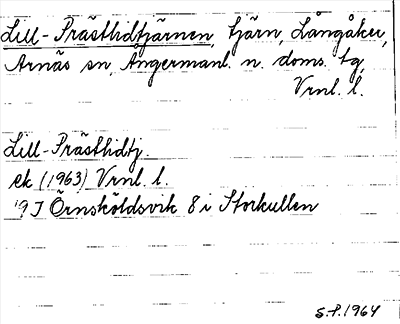 Lill-Prästlidtjärnen, tjärn, Långåker,
Arnäs sn, Ångermanl. n. doms. tg,
Vrnl. l.
Lill-Prästlidtj.
ek (1963) Vrnl. l.
19J Örnsköldsvik 8 i Storkullen
S.P. 1964